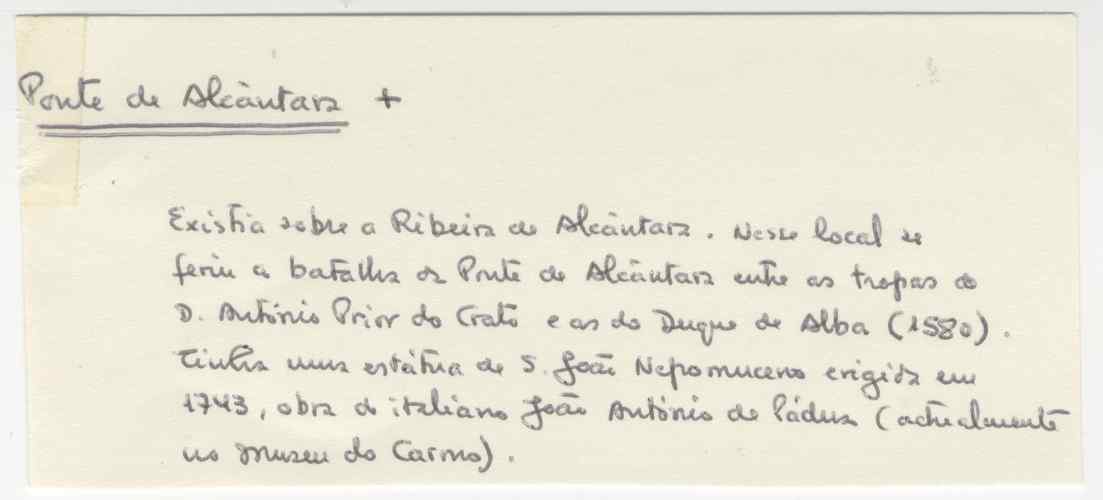 Ponte de Alcântara +
Existia sobre a Ribeira de Alcântara. Nesse local se
feriu a batalha da Ponte de Alcântara entre as tropas de
D. António Prior do Crato e as do Duque de Alba (1580).
Tinha uma estátua de S. João Nepomuceno erigida em
1743, obra do italiano João António de Pádua (actualmente
no Museu do Carmo).